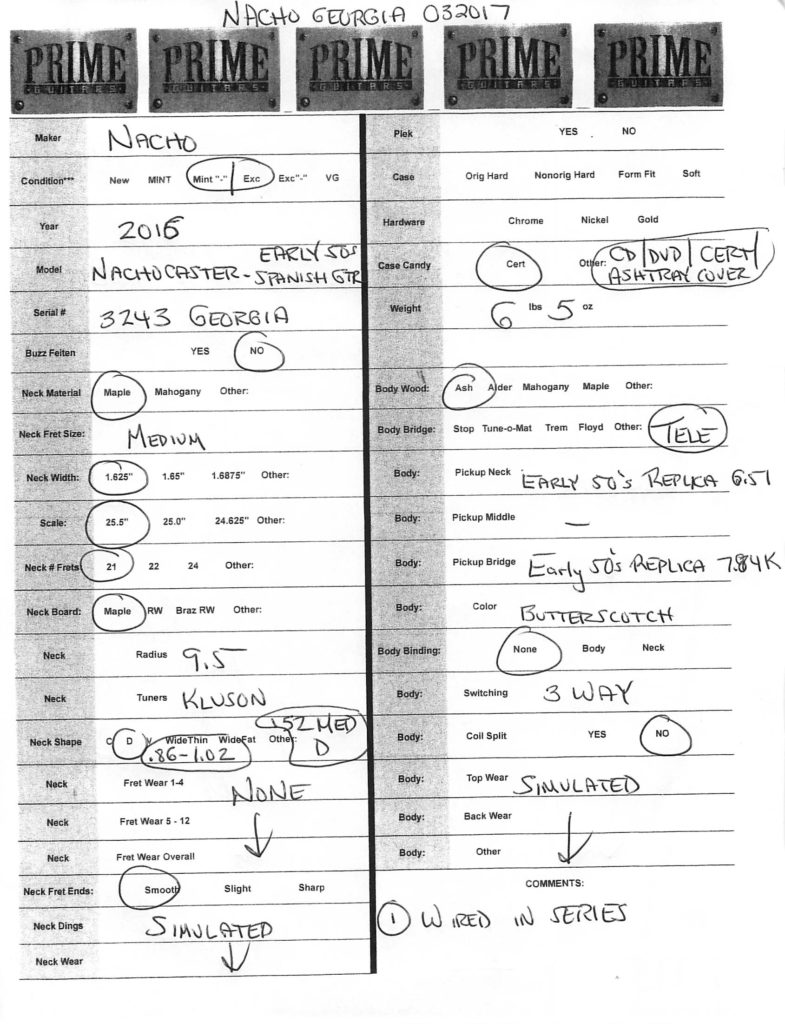 NACHO GEORGIA 032017
PRIME PRIME PRIME PRIME PRIME
GUITARS GUITARS GUITARS GUITARS GUITARS
Maker NACHO
Condition*** New MINT Mint "-" Exc Exc"-" VG
Year 2016
Model NACHOCASTER - EARLY 50s
SPANISH GTR
Serial # 3243 GEORGIA
Buzz Feiten YES NO
Neck Material Maple Mahogany Other:
Neck Fret Size: MEDIUM
Neck Width: 1.625" 1.65" 1.6875" Other:
Scale: 25.5" 25.0" 24.625" Other:
Neck # Frets 21 22 24 Other:
Neck Board: Maple RW Braz RW Other:
Neck Radius 9.5
Neck Tuners KLUSON
Neck Shape C D V WideThin WideFat Other: 152 MED
.86-1.02 D
Neck Fret Wear 1-4 NONE
Neck Fret Wear 5 - 12
Neck Fret Wear Overall
Neck Fret Ends: Smooth Slight Sharp
Neck Dings SIMULATED
Neck Wear
Plek YES NO
Case Orig Hard Nonorig Hard Form Fit Soft
Hardware Chrome Nickel Gold
Case Candy Cert Other: CD/DVD/CERT/
ASHTRAY COVER
Weight 6 lbs 5 oz
Body Wood: Ash Alder Mahogany Maple Other:
Body Bridge: Stop Tune-o-Mat Trem Floyd Other: TELE
Body: Pickup Neck EARLY 50's REPLICA 6.51
Body: Pickup Middle —
Body: Pickup Bridge Early 50's REPLICA 7.84K
Body: Color BUTTERSCOTCH
Body Binding: None Body Neck
Body: Switching 3 WAY
Body: Coil Split YES NO
Body: Top Wear SIMULATED
Body: Back Wear
Body: Other
COMMENTS:
1 WIRED IN SERIES